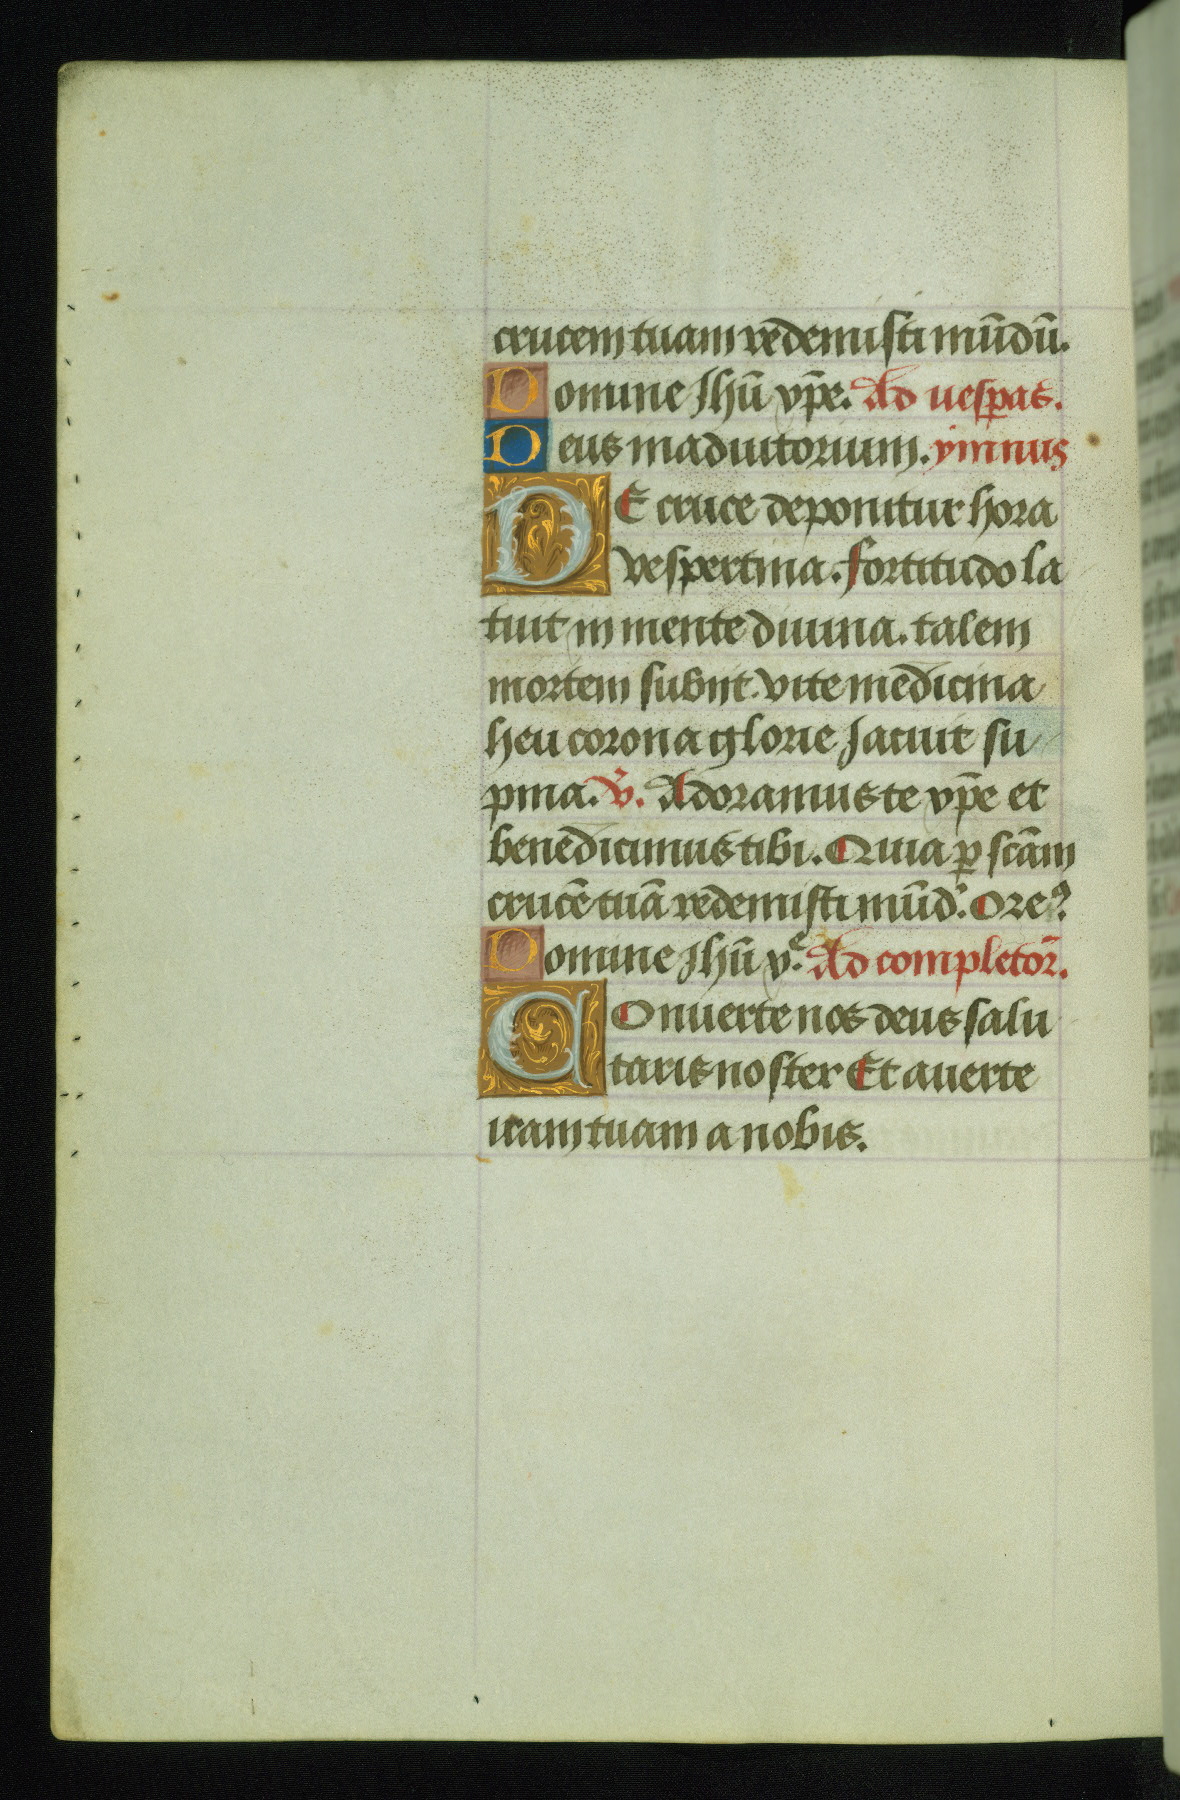 crucem tuam redemisti mūdū.
Domine Jhū xp̄e. Ad uesp̄as.
Deus in adiutorium. ymnus
DE cruce deponitur hora
vespertina. fortitudo la
tuit in mente diuina. talem
mortem subijt vite medicina
heu corona glorie Jacuit su
pina. v̄. Adoramus te xp̄e et
benedicimus tibi. Quia ꝑ scām
crucē tuā redemisti mūd'. Ore?
Domine Jhū x͛. Ad completor̄.
COnuerte nos deus salu
taris noster Et auerte
iram tuam a nobis.